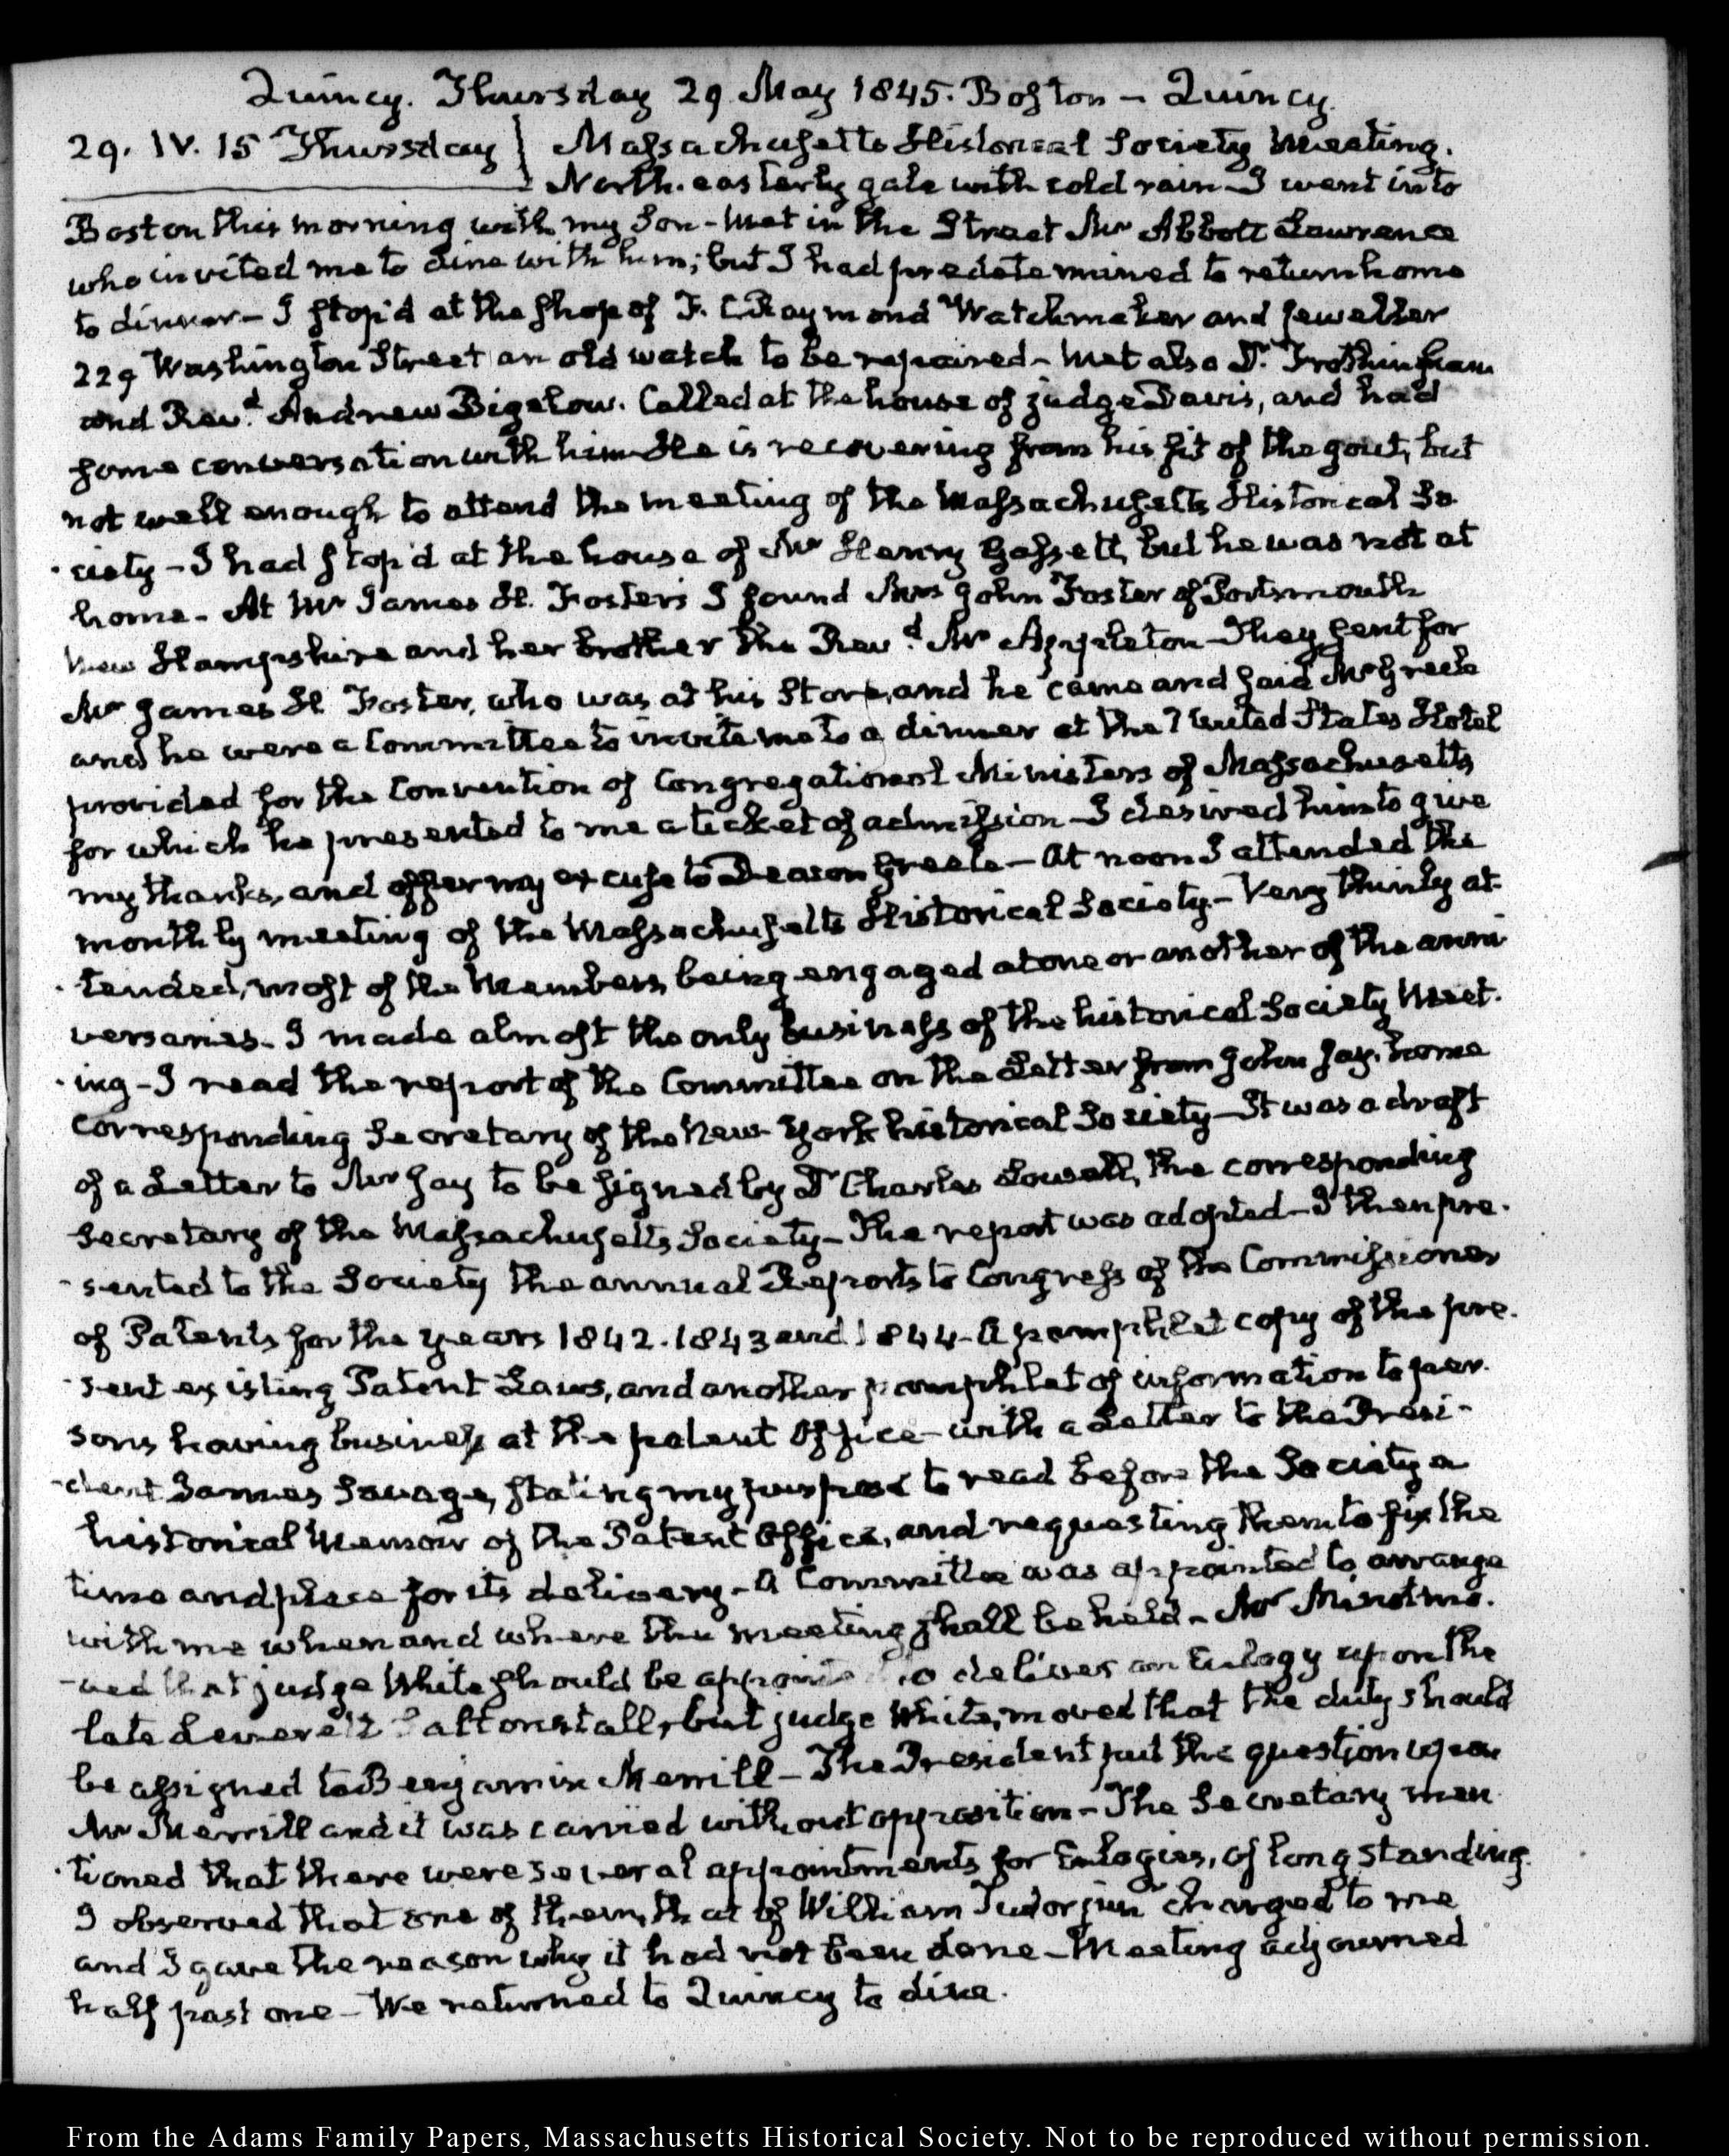 Quincy. Thursday 29 May 1845. Boston – Quincy.
29. IV. 15 Thursday } Massachusetts Historical Society Meeting.
North-easterly gale with cold rain – I went into
Boston this morning with my Son – Met in the Street Mr Abbott Lawrence
who invited me to dine with him; but I had predetermined to return home
to dinner – I stop'd at the shop of F. Raymond Watchmaker and Jeweller
229 Washington Street an old watch to be repaired – Met also Dr. Frothingham
and Revd. Andrew Bigelow. Called at the house of judge Davis, and had
some conversation with him – He is recovering from his fit of the gout, but
not well enough to attend the meeting of the Massachusetts Historical So
ciety – I had stop'd at the house of Mr Henry Gassett, but he was not at
home – At Mr James H. Foster's I found Mrs John Foster of Portsmouth
New Hampshire and her brother the Revd. Mr Appleton – They sent for
Mr James H Foster, who was at his Store, and he came and said Mr Greele
and he were a Committee to invite me to a dinner at the United States Hotel
provided for the Convention of Congregational Ministers of Massachusetts
for which he presented to me a ticket of admission – I desired him to give
my thanks, and offer my excuse to Deacon Greele – At noon I attended the
monthly meeting of the Massachusetts Historical Society – Very thinly at-
tended, most of the Members being engaged at one or another of the anni
versaries – I made almost the only business of the historical Society Meet-
ing – I read the report of the Committee on the Letter from John Jay, home
Corresponding Secretary of the New-York historical Society – It was a draft
of a Letter to Mr Jay to be signed by Dr Charles Lowell, the corresponding
Secretary of the Massachusetts Society – The report was adopted – I then pre-
sented to the Society the annual Reports to Congress of the Commissioner
of Patents for the years 1842. 1843 and 1844 – A pamphlet copy of the pre-
sent existing Patent Laws, and another pamphlet of information to per-
sons having business at the patent Office – with a Letter to the Presi-
dent James Savage, stating my purpose to read before the Society a
historical Memoir of the Patent Office, and requesting them to fix the
time and place for its delivery – A Committee was appointed to arrange
with me when and where the meeting shall be held – Mr Minot mo-
ved that judge White should be to deliver an Eulogy upon the
late Leverett Saltonstall, but judge White, moved that the duty should
be assigned to Benjamin Merrill – The President put the question upon
Mr Merrill and it was carried without opposition – The Secretary men
tioned that there were several appointments for Eulogies, of long standing.
I observed that one of them, that of William Tudor jun charged to me
and I gave the reason why it had not been done – Meeting adjourned
half past one – We returned to Quincy to dine.
From the Adams Family Papers, Massachusetts Historical Society. Not to be reproduced without permission.